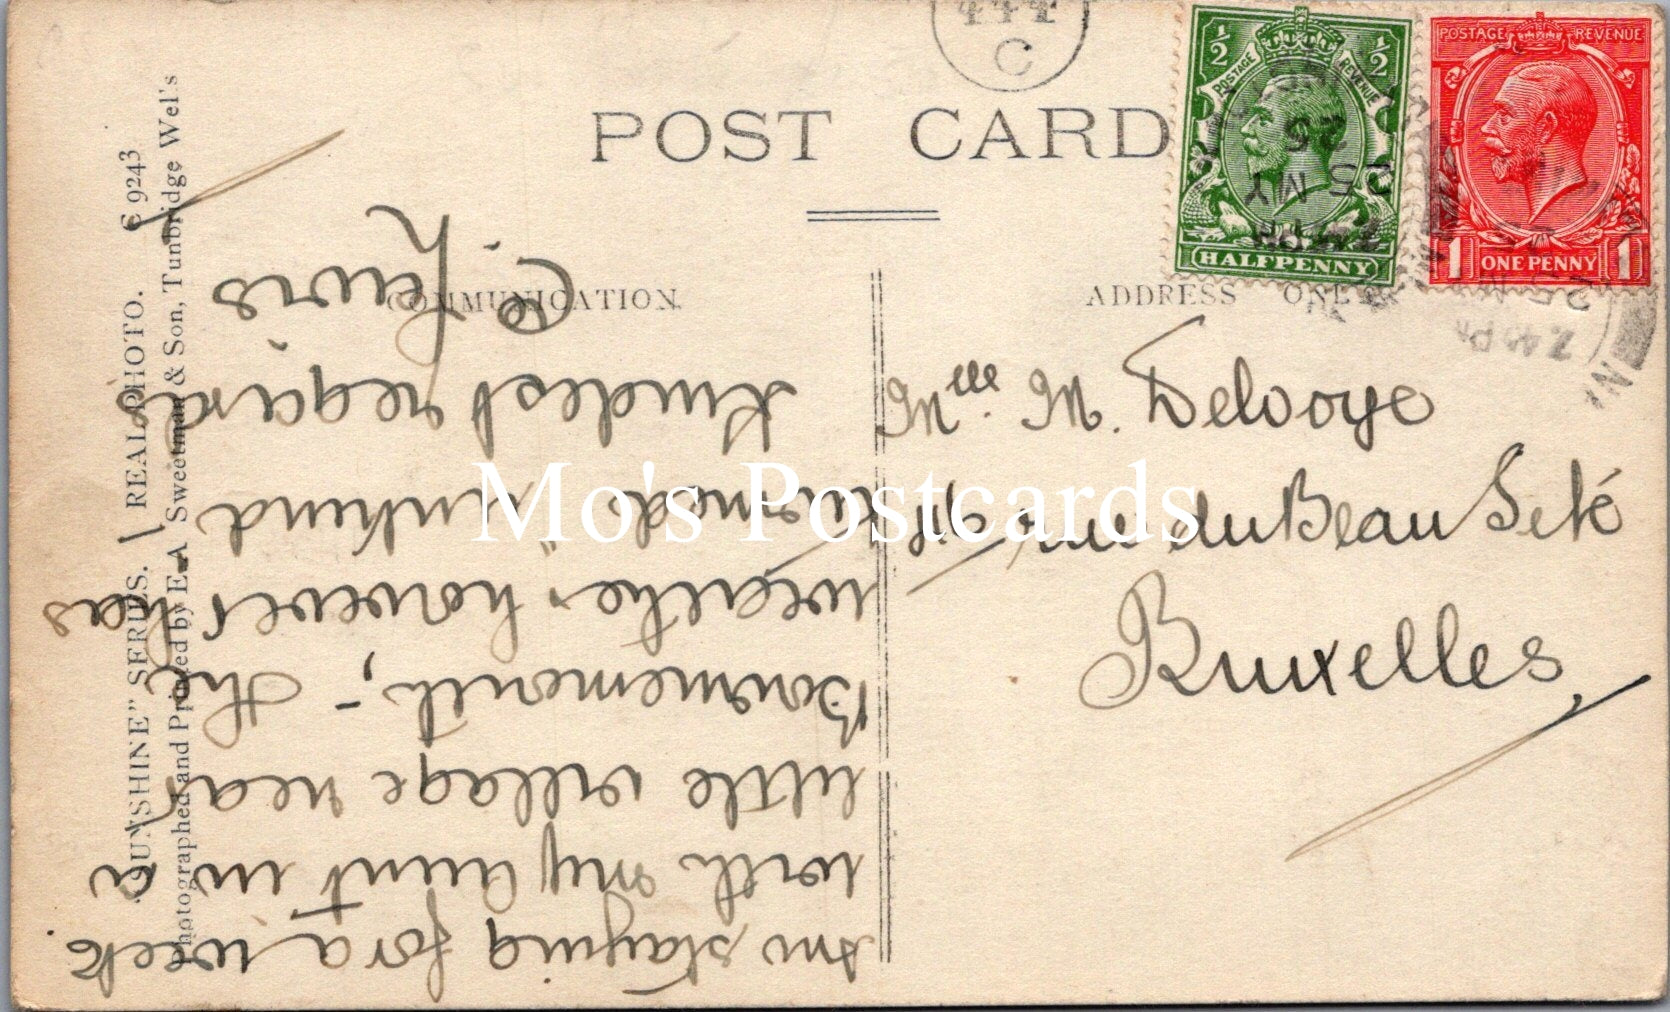 444
C
POST CARD
½ ½
POSTAGE REVENUE
HALFPENNY
POSTAGE REVENUE
1 ONE PENNY 1
25 MY
25
COMMUNICATION.
ADDRESS ONL
"SUNSHINE" SERIES. REAL PHOTO. C 9243
Photographed and Printed by E.A Sweetman & Son, Tunbridge Wel's
Am staying for a week.
with my aunt in a
little village near
Bournemouth, - the
weather however has
turned unkind
Kindest regards
C. Lewis
Mlle. M. Delooye
rue du Beau Sité
Bruxelles
Mo's Postcards